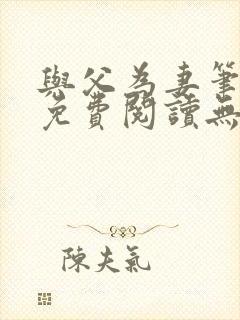 與父為妻筆
免費閱讀無
陳夫氣